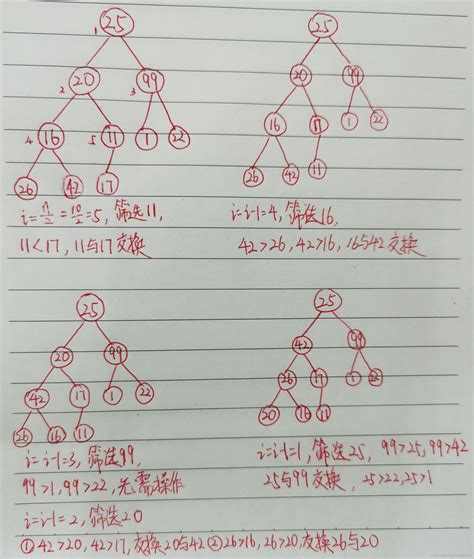 25
25
1
20
99
2
3
20
99
16
11
1
22
4
5
16
17
1
22
26
42
17
26
42
11
i=n/2=10/2=5, 筛选11,
i=i-1=4, 筛选16,
11<17, 11与17交换
42>26, 42>16, 16与42交换
25
25
20
99
42
99
42
17
1
22
26
17
1
22
26
16
11
20
16
11
i=i-1=3, 筛选99,
i=i-1=1, 筛选25, 99>25, 99>42
99>1, 99>22, 无需操作
25与99交换, 25>22, 25>1
i=i-1=2, 筛选20
① 42>20, 42>17, 交换20与42 ② 26>16, 26>20, 交换26与20